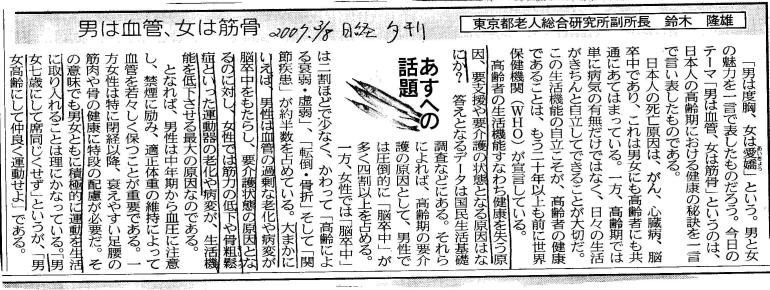 男は血管、女は筋骨
2007.3/8 日経 夕刊
東京都老人総合研究所副所長 鈴木 隆雄
あすへの
話題
「男は度胸、女は愛嬌」という。男と女
あいきょう
の魅力を一言で表したものだろう。今日の
テーマ「男は血管、女は筋骨」というのは、
日本人の高齢期における健康の秘訣を一言
で言い表したものである。
日本人の死亡原因は、がん、心臓病、脳
卒中であり、これは男女にも高齢者にも共
通にあてはまっている。一方、高齢期では
単に病気の有無だけではなく、日々の生活
がきちんと自立してできることが大切だ。
この生活機能の自立こそが、高齢者の健康
であることは、もう二十年以上も前に世界
保健機関（WHO）が宣言している。
高齢者の生活機能すなわち健康を失う原
因、要支援や要介護の状態となる原因はな
にか？ 答えとなるデータは国民生活基礎
調査などにある。それら
によれば、高齢期の要介
護の原因として、男性で
は圧倒的に「脳卒中」が
多く四割以上を占める。
一方、女性では「脳卒中」
は二割ほどで少なく、かわって「高齢によ
る衰弱・虚弱」、「転倒・骨折」そして「関
節疾患」が約半数を占めている。大まかに
いえば、男性は血管の過剰な老化や病変が
脳卒中をもたらし、要介護状態の原因とな
るのに対し、女性では筋力の低下や骨粗鬆
症といった運動器の老化や病変が、生活機
能を低下させる最大の原因なのである。
となれば、男性は中年期から血圧に注意
し、禁煙に励み、適正体重の維持によって
血管を若々しく保つことが重要である。一
方女性は特に閉経以降、衰えやすい足腰の
筋肉や骨の健康に特段の配慮が必要だ。そ
の意味でも男女ともに積極的に運動を生活
に取り入れることは理にかなっている。「男
女七歳にして席同じくせず」というが、「男
女高齢にして仲良く運動せよ」である。